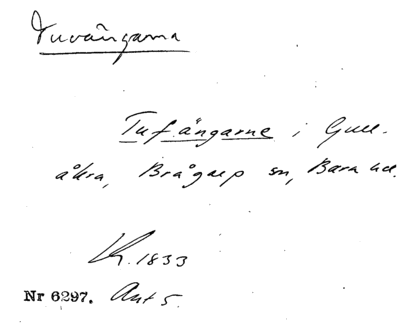 Tuvängarna
Tufängarne i Gull-
åkra, Brågarp sn, Bara hd.
K. 1833
Nr 6297. Ant 5.